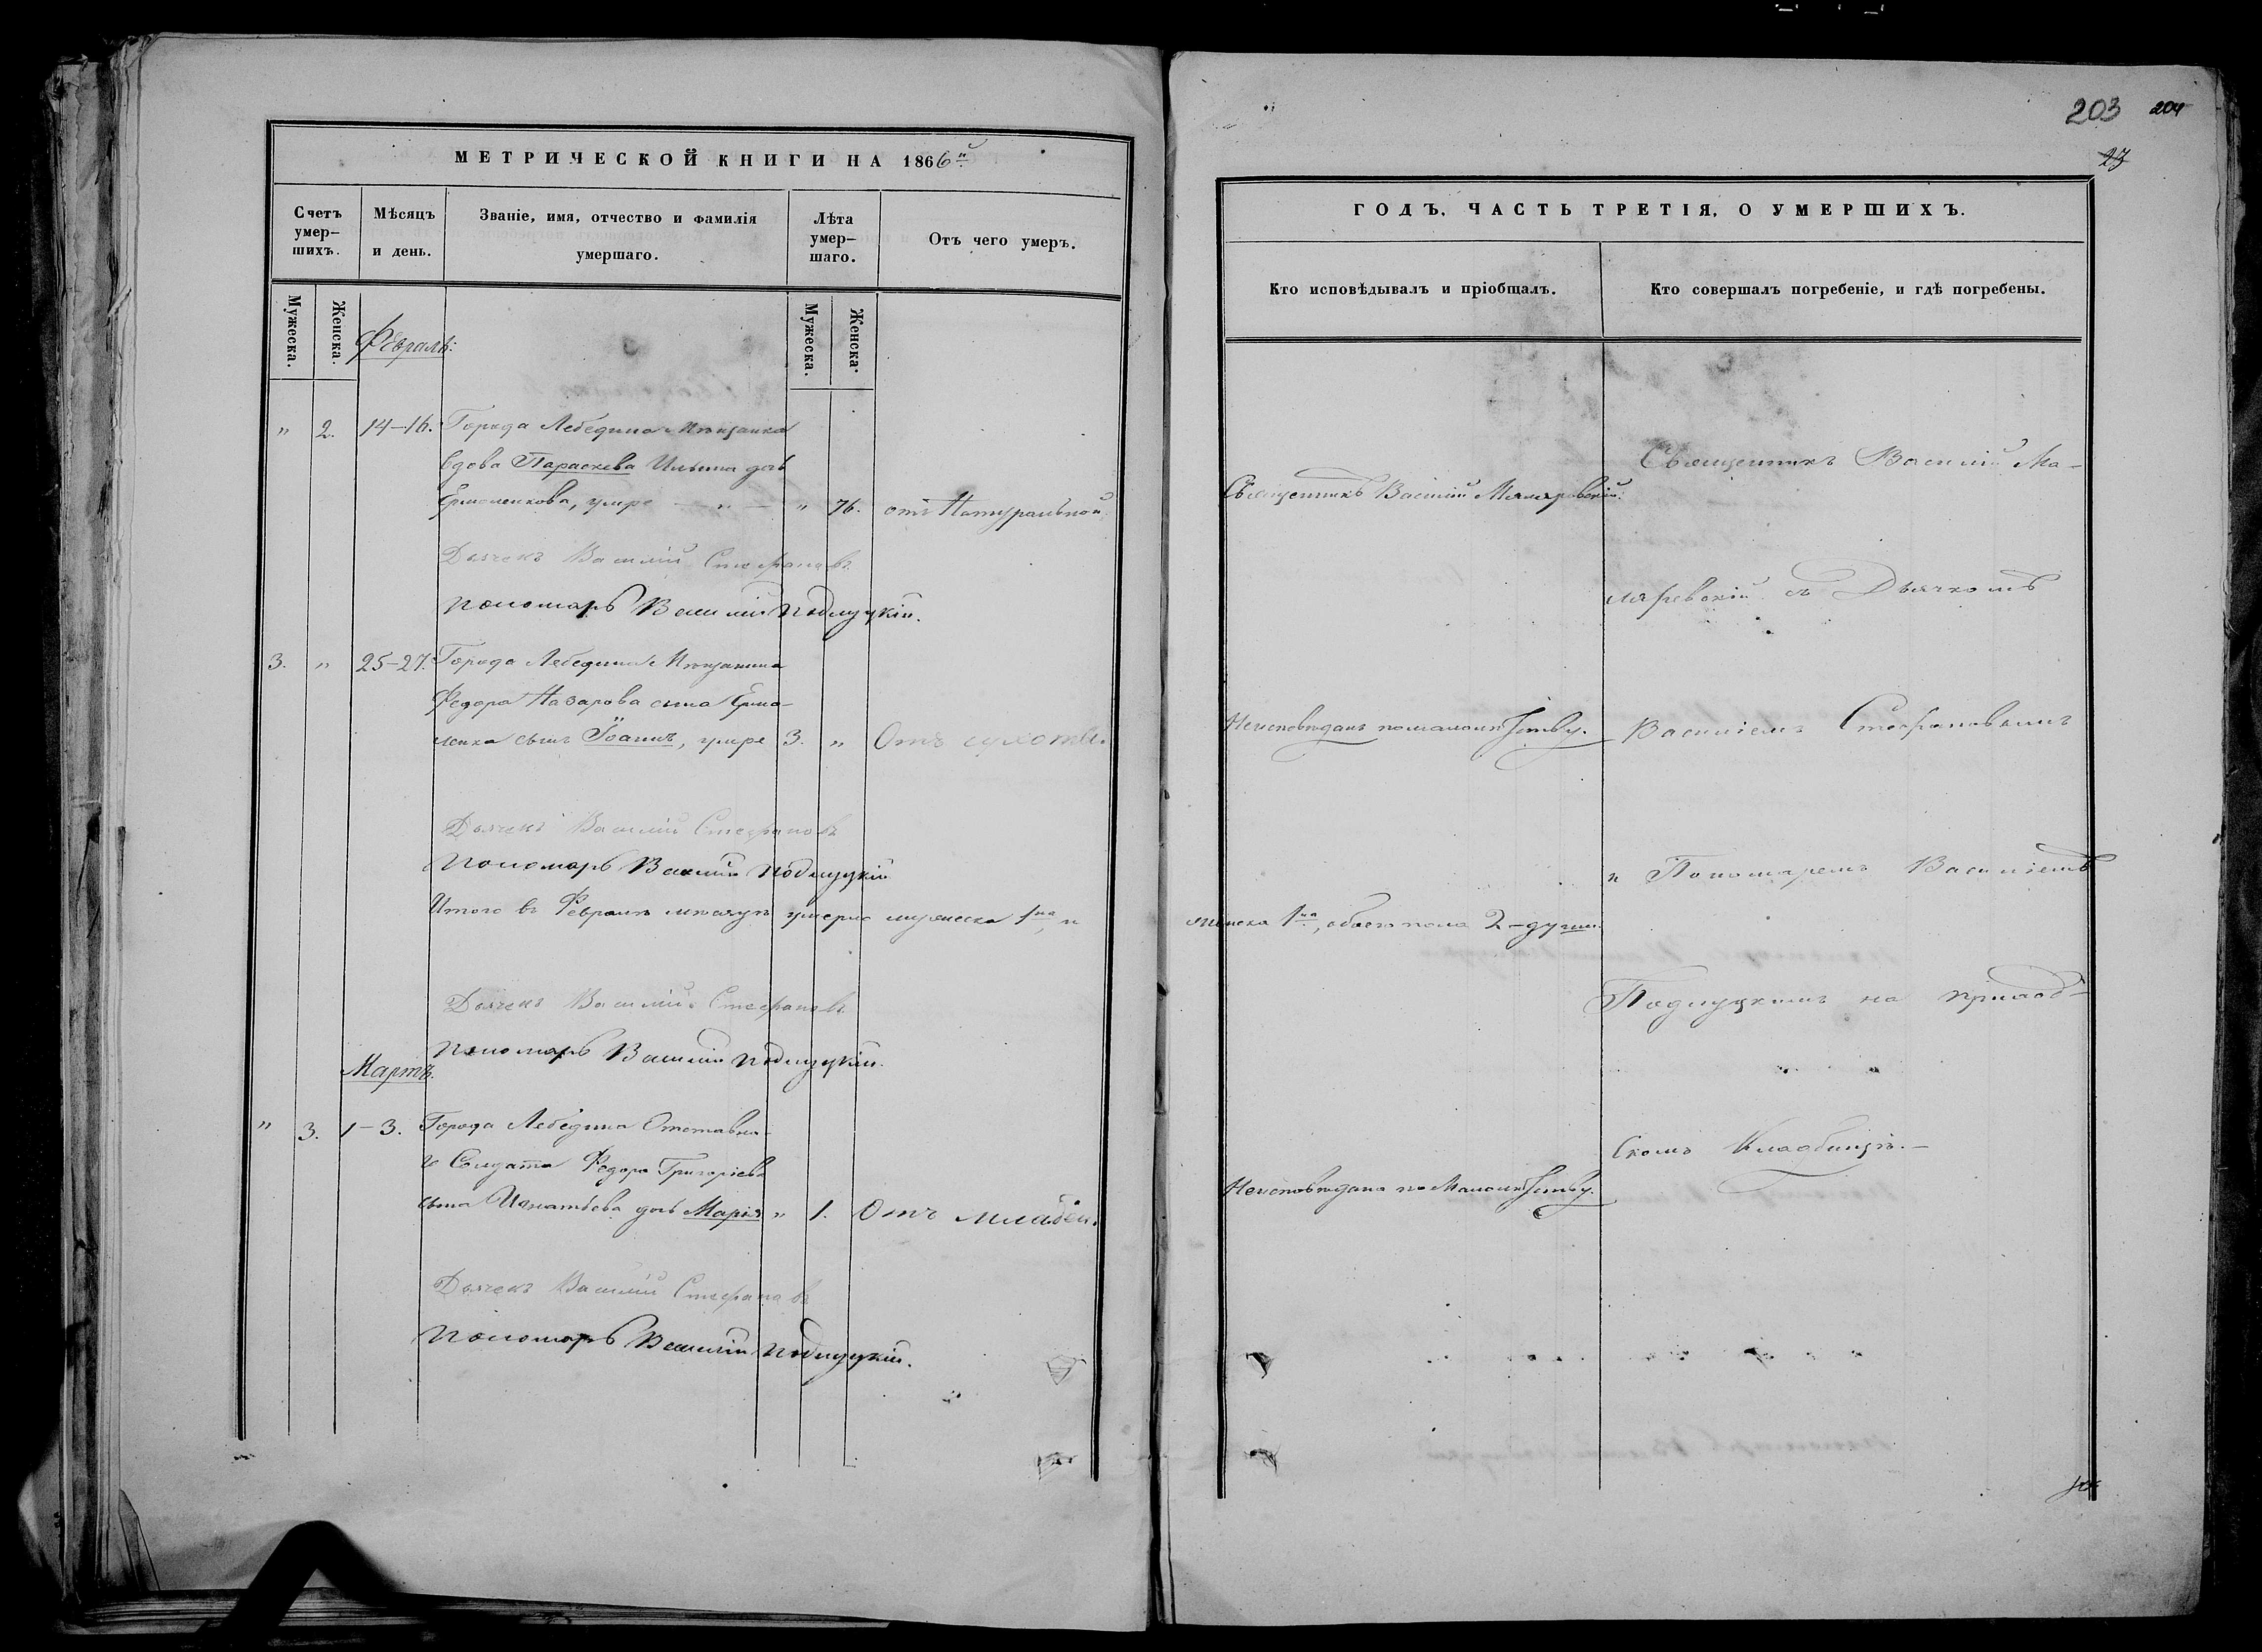 МЕТРИЧЕСКОЙ КНИГИ НА 1866й
Счетъ умер-шихъ.
Мѣсяцъ и день.
Званіе, имя, отчество и фамилія умершаго.
Лѣта умер-шаго.
Отъ чего умеръ.
Мужеска.
Женска.
Мужеска.
Женска.
Февраль:
" 2. 14-16. Города Лебедина Мѣщанка
вдова Параскева Ильина дочь
Ермоленкова, умре — " — " 76. отъ Натуральной.
Дьячекъ Василій Стефановъ
Пономарь Василій Подлуцкій.
3. " 25-27. Города Лебедина Мѣщанина
Федора Назарова сына Ермо-
ленка сынъ Іоаннъ, умре 3. " Отъ сухотъ.
Дьячекъ Василій Стефановъ
Пономарь Василій Подлуцкій
Итого въ Февралѣ мѣсяцѣ умерло мужеска 1на, и
Дьячекъ Василій Стефановъ
Пономарь Василій Подлуцкій.
Мартъ.
" 3. 1-3. Города Лебедина Отставна-
го Солдата Федора Григорьева
сына Игнатьева дочь Марія " 1. Отъ младен.
Дьячекъ Василій Стефановъ
Пономарь Василій Подлуцкій.
203 204
23
ГОДЪ, ЧАСТЬ ТРЕТІЯ, О УМЕРШИХЪ.
Кто исповѣдывалъ и пріобщалъ.
Кто совершалъ погребеніе, и гдѣ погребены.
Священникъ Василій Ма-
Священникъ Василій Маляровскій.
ляревскій съ Дьячкомъ
Неисповѣданъ по малолѣтству.
Василіемъ Стефановымъ
и Пономаремъ Василіемъ
женска 1на, обоего пола 2-души.
Подлуцкимъ на приход-
скомъ Кладбищѣ.—
Неисповѣдана по Малолѣтству.